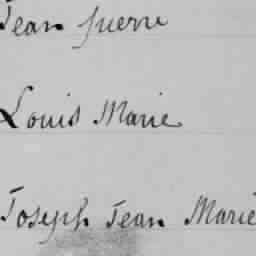 Jean pierre
Louis Marie
Joseph Jean Marie